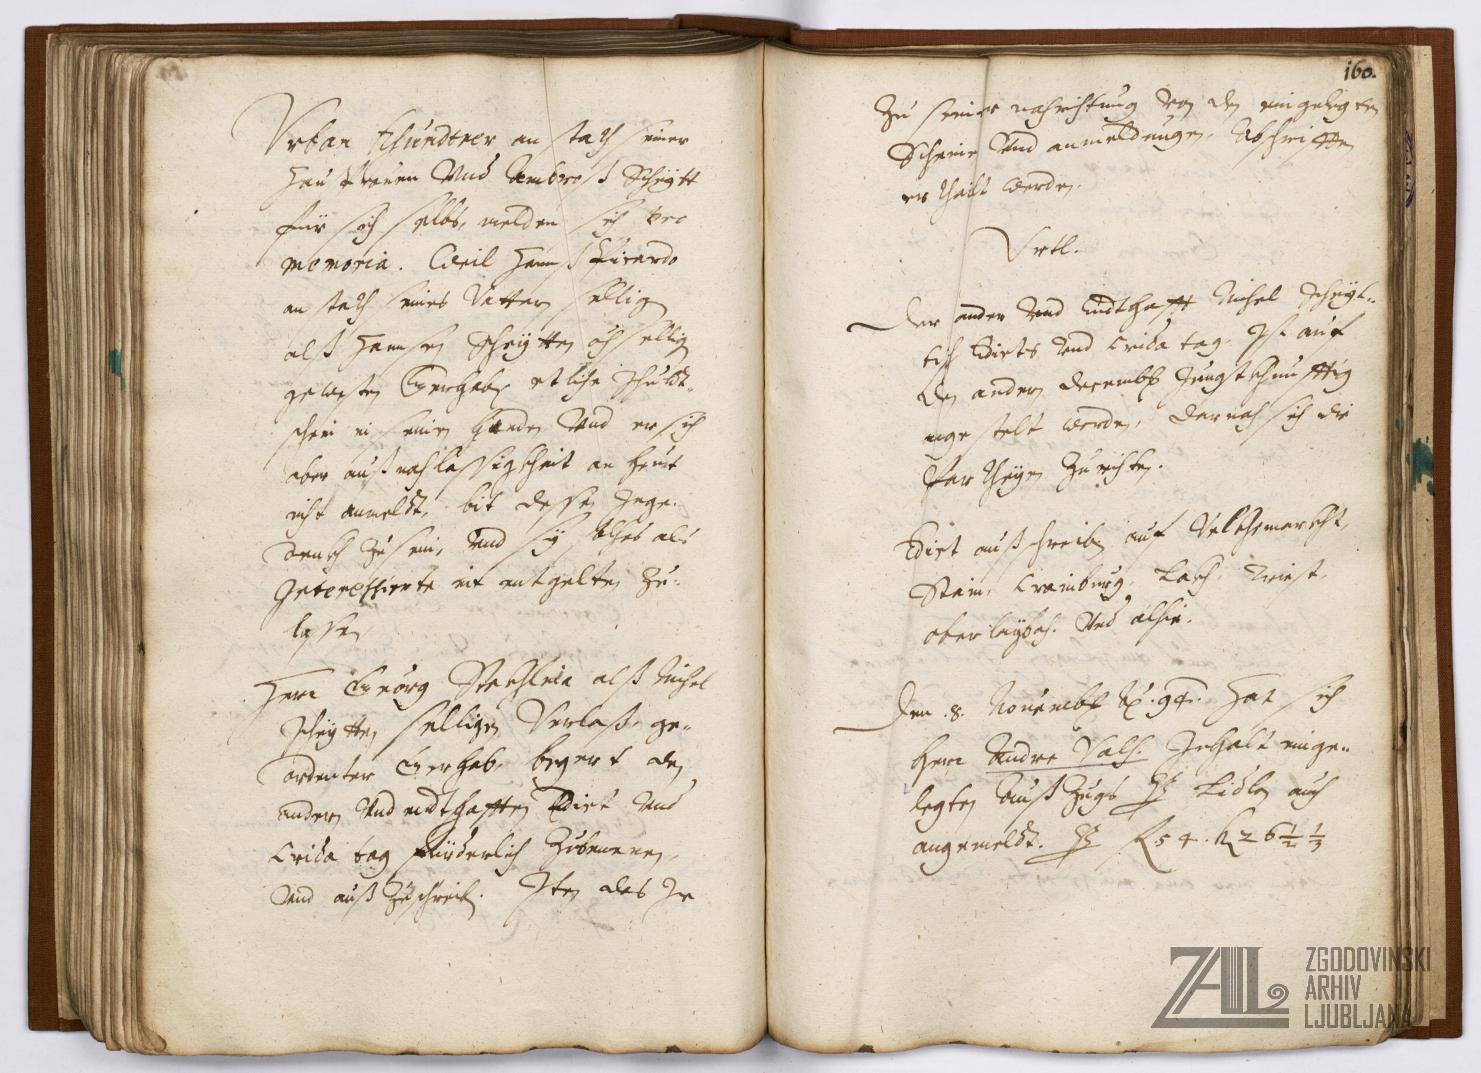 Vrban Khundtner an stath seiner
Hausfrauen Vnd Ambroß Scheytt
für sich selbs, melden sich pro
memoria. Weil Hannß Picardo
an stath seines Vattern sellig
alß Hannsen Scheytten auch sellig
gewesten Gerhaben etliche schuldt-
schein in seinen Handen Vnd er sich
aber auß nachlessigkheit an heut
nicht anmeldt, bit dessen Inge-
denkh zu sein, Vnd sy solches als
Interessierte nit entgelten zu-
lassen
Herr Georg Stechlein alß Michel
Scheytten selligen Verlaß, ge-
ordenter Gerhab, begert den
andern Vnd endthafften Edict Vnd
Crida tag fürderlich Zubenennen,
Vnd auß Zuschreiben. Item das Ir
160.
Zu seiner nachrichtung Von den eingelegten
Scheine Vnd anmeldungen, Abschrifften
er thailt werden.
Vrtl.
Der ander Vnd Endthafft Michel Scheyt-
tisch Edicts Vnd Crida tag, Ist auf
den andern Decemb. Jungstkhunfftig
angestelt worden, darnach sich die
Partheyen Zurichten.
Edict außschreiben auf Velkhemarckht,
Stain, Crainburg, Lackh, Triest,
oberlaybach, Vnd alhie.
Den .8. Nouemb. A. 94. Hat sich
Herr Andre Inhalt einge-
legten Auß Zugs Lidlon auch
angemeldt. 54 . 26 ½ ⅓
ZGODOVINSKI
ARHIV
LJUBLJANA
ZAL